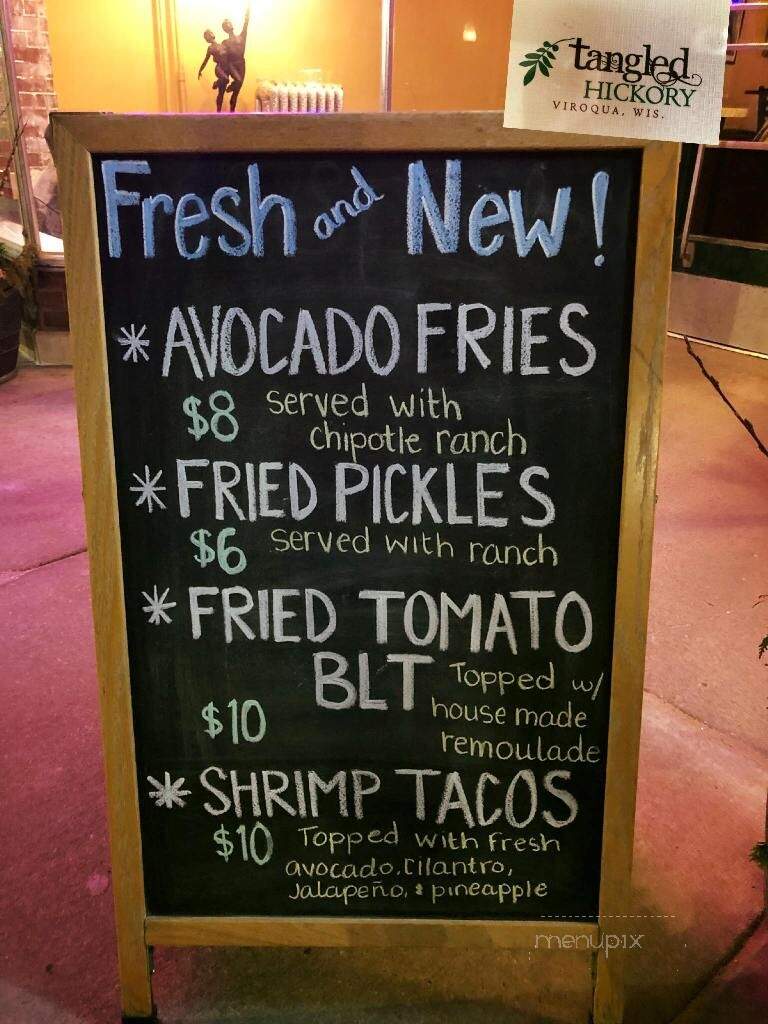 tangled
HICKORY
VIROQUA, WIS.
Fresh and New!
* AVOCADO FRIES
$8 served with
chipotle ranch
* FRIED PICKLES
$6 served with ranch
* FRIED TOMATO
BLT Topped w/
$10 house made
remoulade
* SHRIMP TACOS
$10 Topped with Fresh
avocado, cilantro,
Jalapeño, & pineapple
menupix